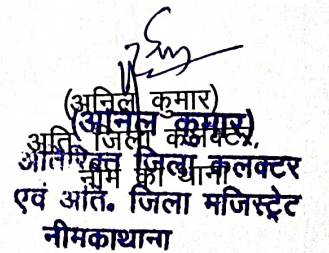 (अनिल कुमार)
(अनिल कुमार)
अति. जिला कलक्टर,
अतिरिक्त जिला कलक्टर
नीम का थाना
एवं अति. जिला मजिस्ट्रेट
नीमकाथाना